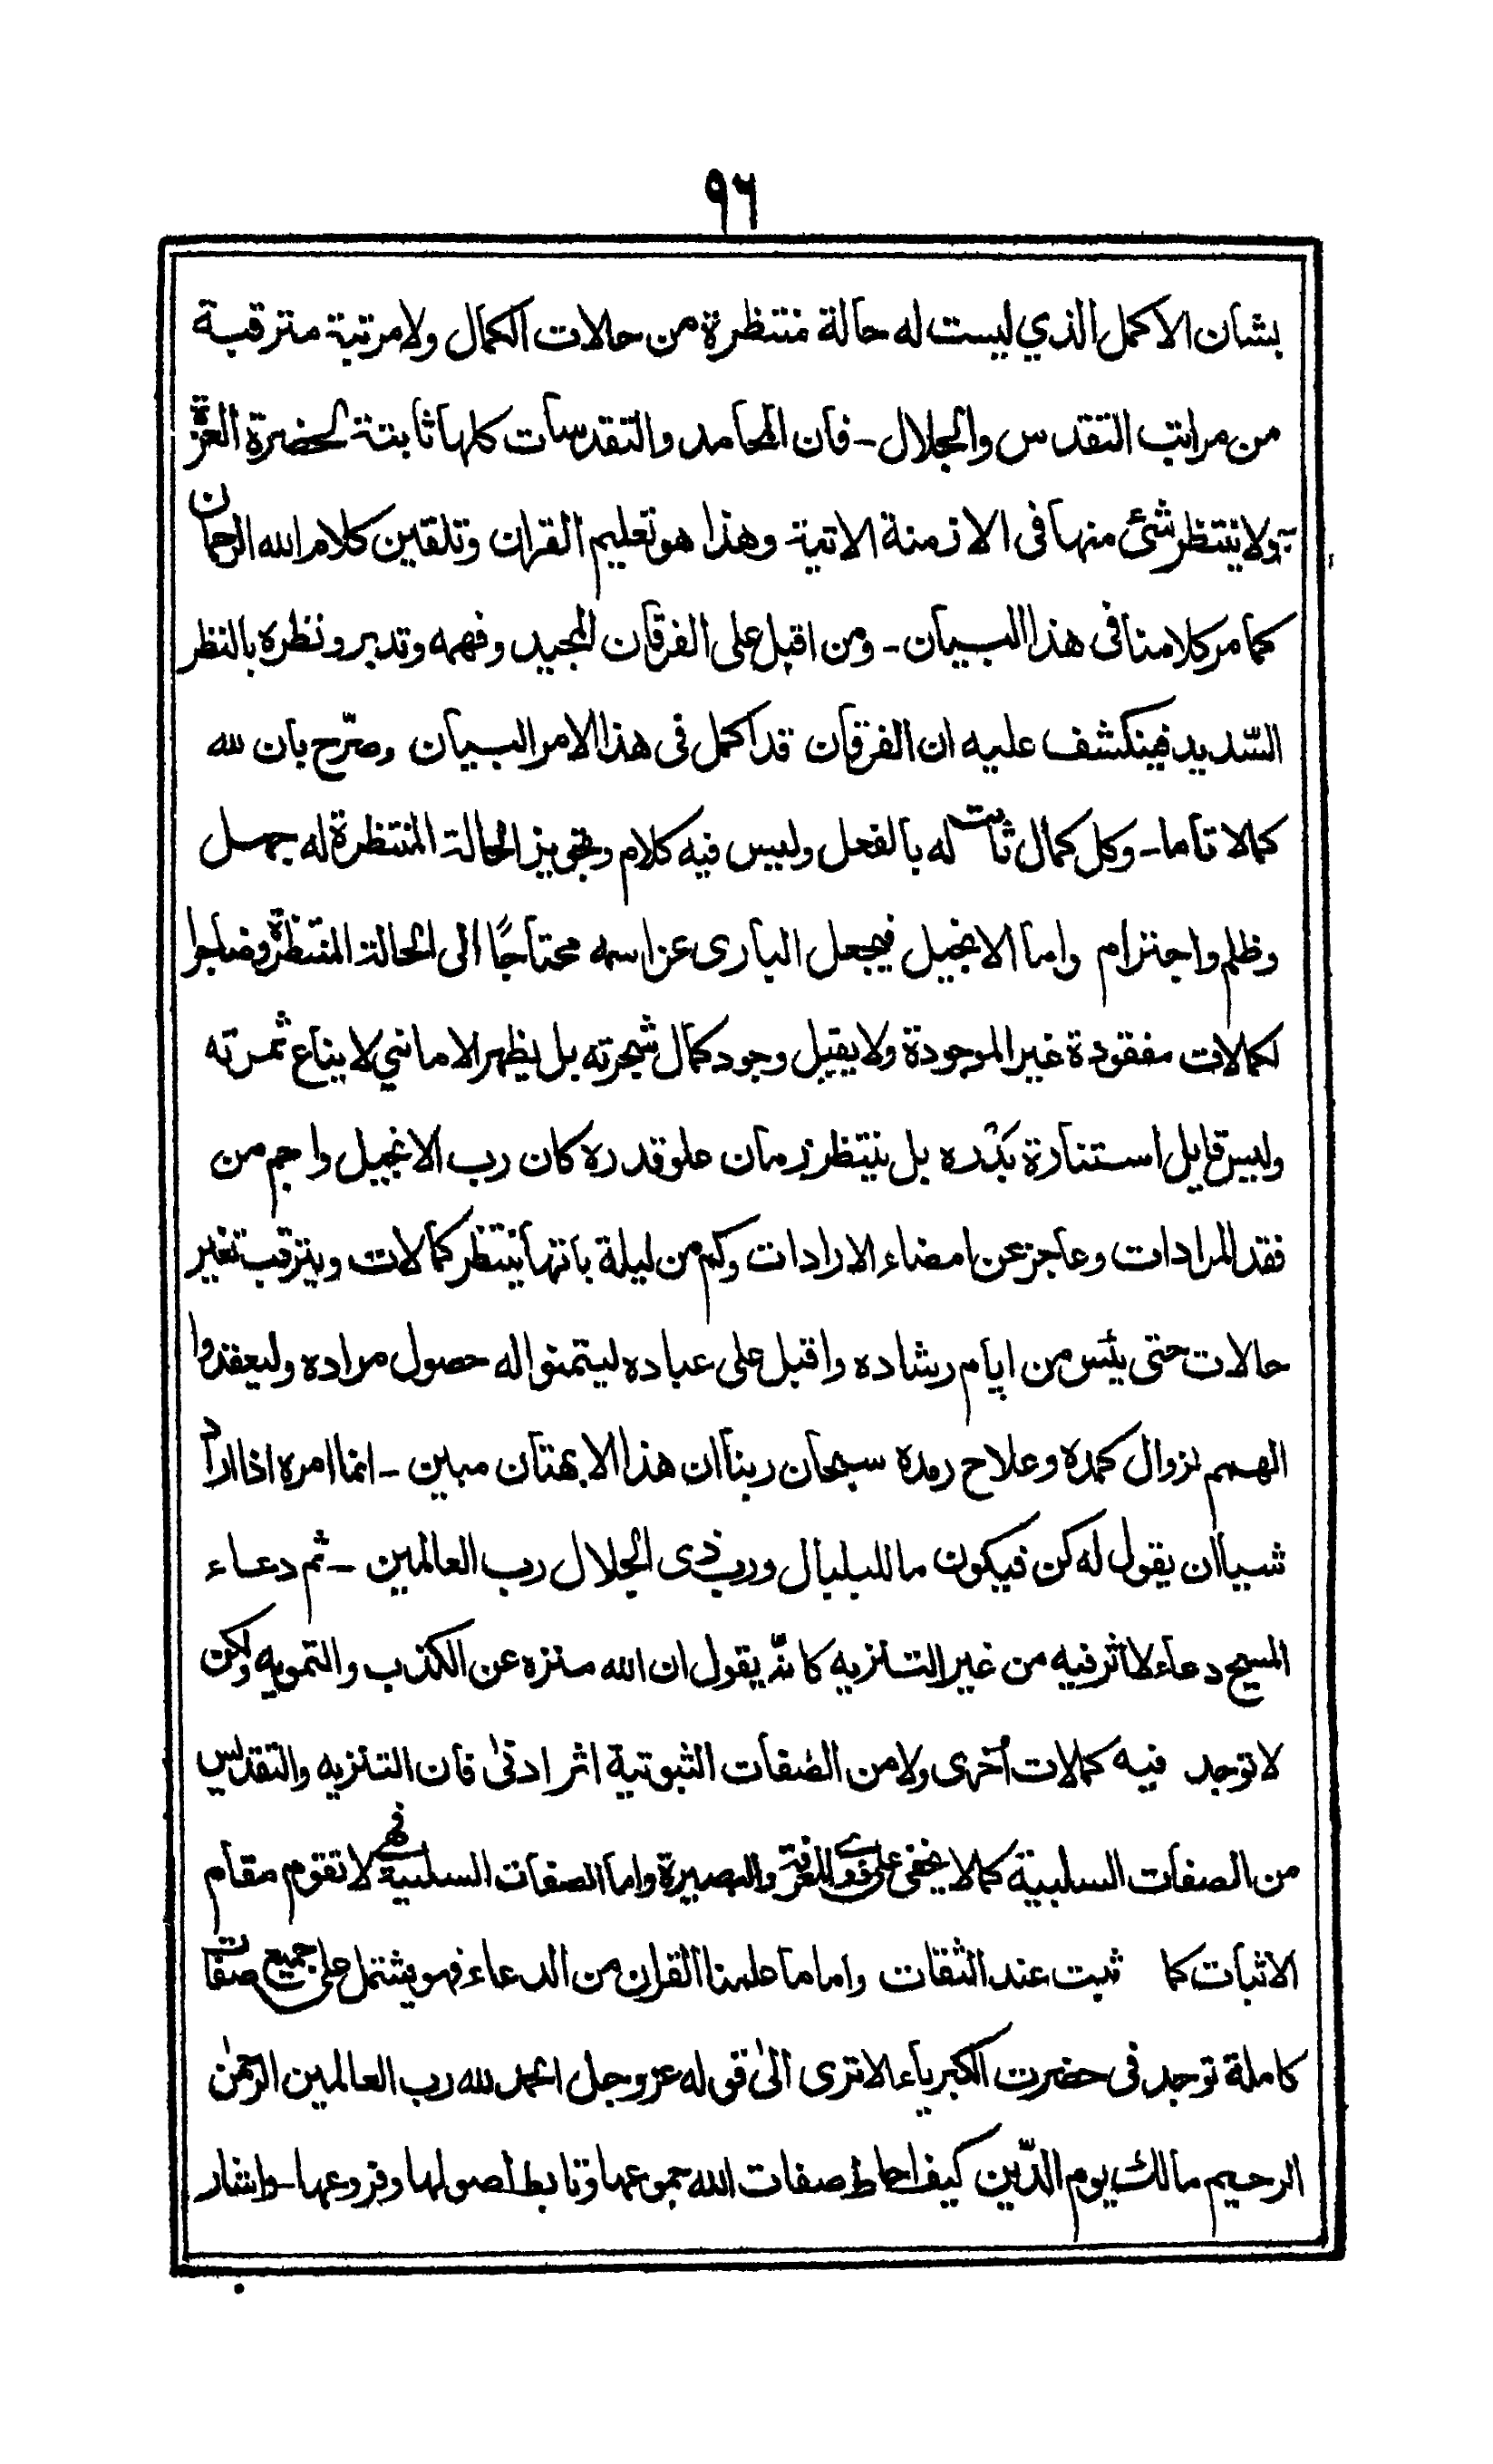 ٩٦
بشان الاكمل الذي ليست له حالة منتظرة من حالات الكمال ولا مرتبة مترقبة
من مراتب التقدس والجلال - فان المحامد والتقدسات كلها ثابتة لحضرة العزّة
ولا ينتظر شئ منها فى الازمنة الاتية وهذا هو تعليم القران وتلقين كلام الله الرحمان
كما مر كلامنا فى هذا البيان - ومن اقبل على الفرقان المجيد وفهمه وتدبر ونظره بالنظر
السّديد فينكشف عليه ان الفرقان قد اكمل فى هذا الامر البيان وصرّح بان لله
كمالا تاما - وكل كمال ثابت له بالفعل وليس فيه كلام وتجويز الحالة المنتظرة له جهل
وظلم واجترام واما الانجيل فيجعل البارى عز اسمه محتاجًا الى الحالة المنتظرة وضاجرا
لكمالات مفقودة غير الموجودة ولا يقبل وجود كمال شجرته بل يظهر الامانى لايناع ثمرته
وليس قايل استنارة بدره بل ينتظر زمان علو قدره كان رب الانجيل واجم من
فقد المرادات وعاجز عن امضاء الارادات وكم من ليلة باتها ينتظر كمالات ويترقب تغير
حالات حتى يئس من ايام رشاده واقبل على عباده ليتمنوا له حصول مراده وليعقدوا
الهمم لزوال كمده وعلاج رمده سبحان ربنا ان هذا الا بهتان مبين - انما امره اذا اراد
شيا ان يقول له كن فيكون ما للبلبال ورب ذى الجلال رب العالمين - ثم دعاء
المسيح دعاء لا اثر فيه من غير التنزيه كانّه يقول ان الله منزه عن الكذب والتمويه ولكن
لا توجد فيه كمالات اُخرى ولا من الصّفات الثبوتية اثر ادنىٰ فان التنزيه والتقديس
من الصفات السلبية كما لا يخفى على ذوى المعرفة والبصيرة واما الصفات السلبية فهى لا تقوم مقام
الاثبات كما ثبت عند الثقات واما ما علمنا القران من الدعاء فهو يشتمل على جميع صفات
كاملة توجد فى حضرت الكبرياء الا ترى الىٰ قوله عز وجل الحمد لله رب العالمين الرحمٰن
الرحيم مالك يوم الدّين كيف احاط صفات الله جموعها وتابط اصولها وفروعها - واشار